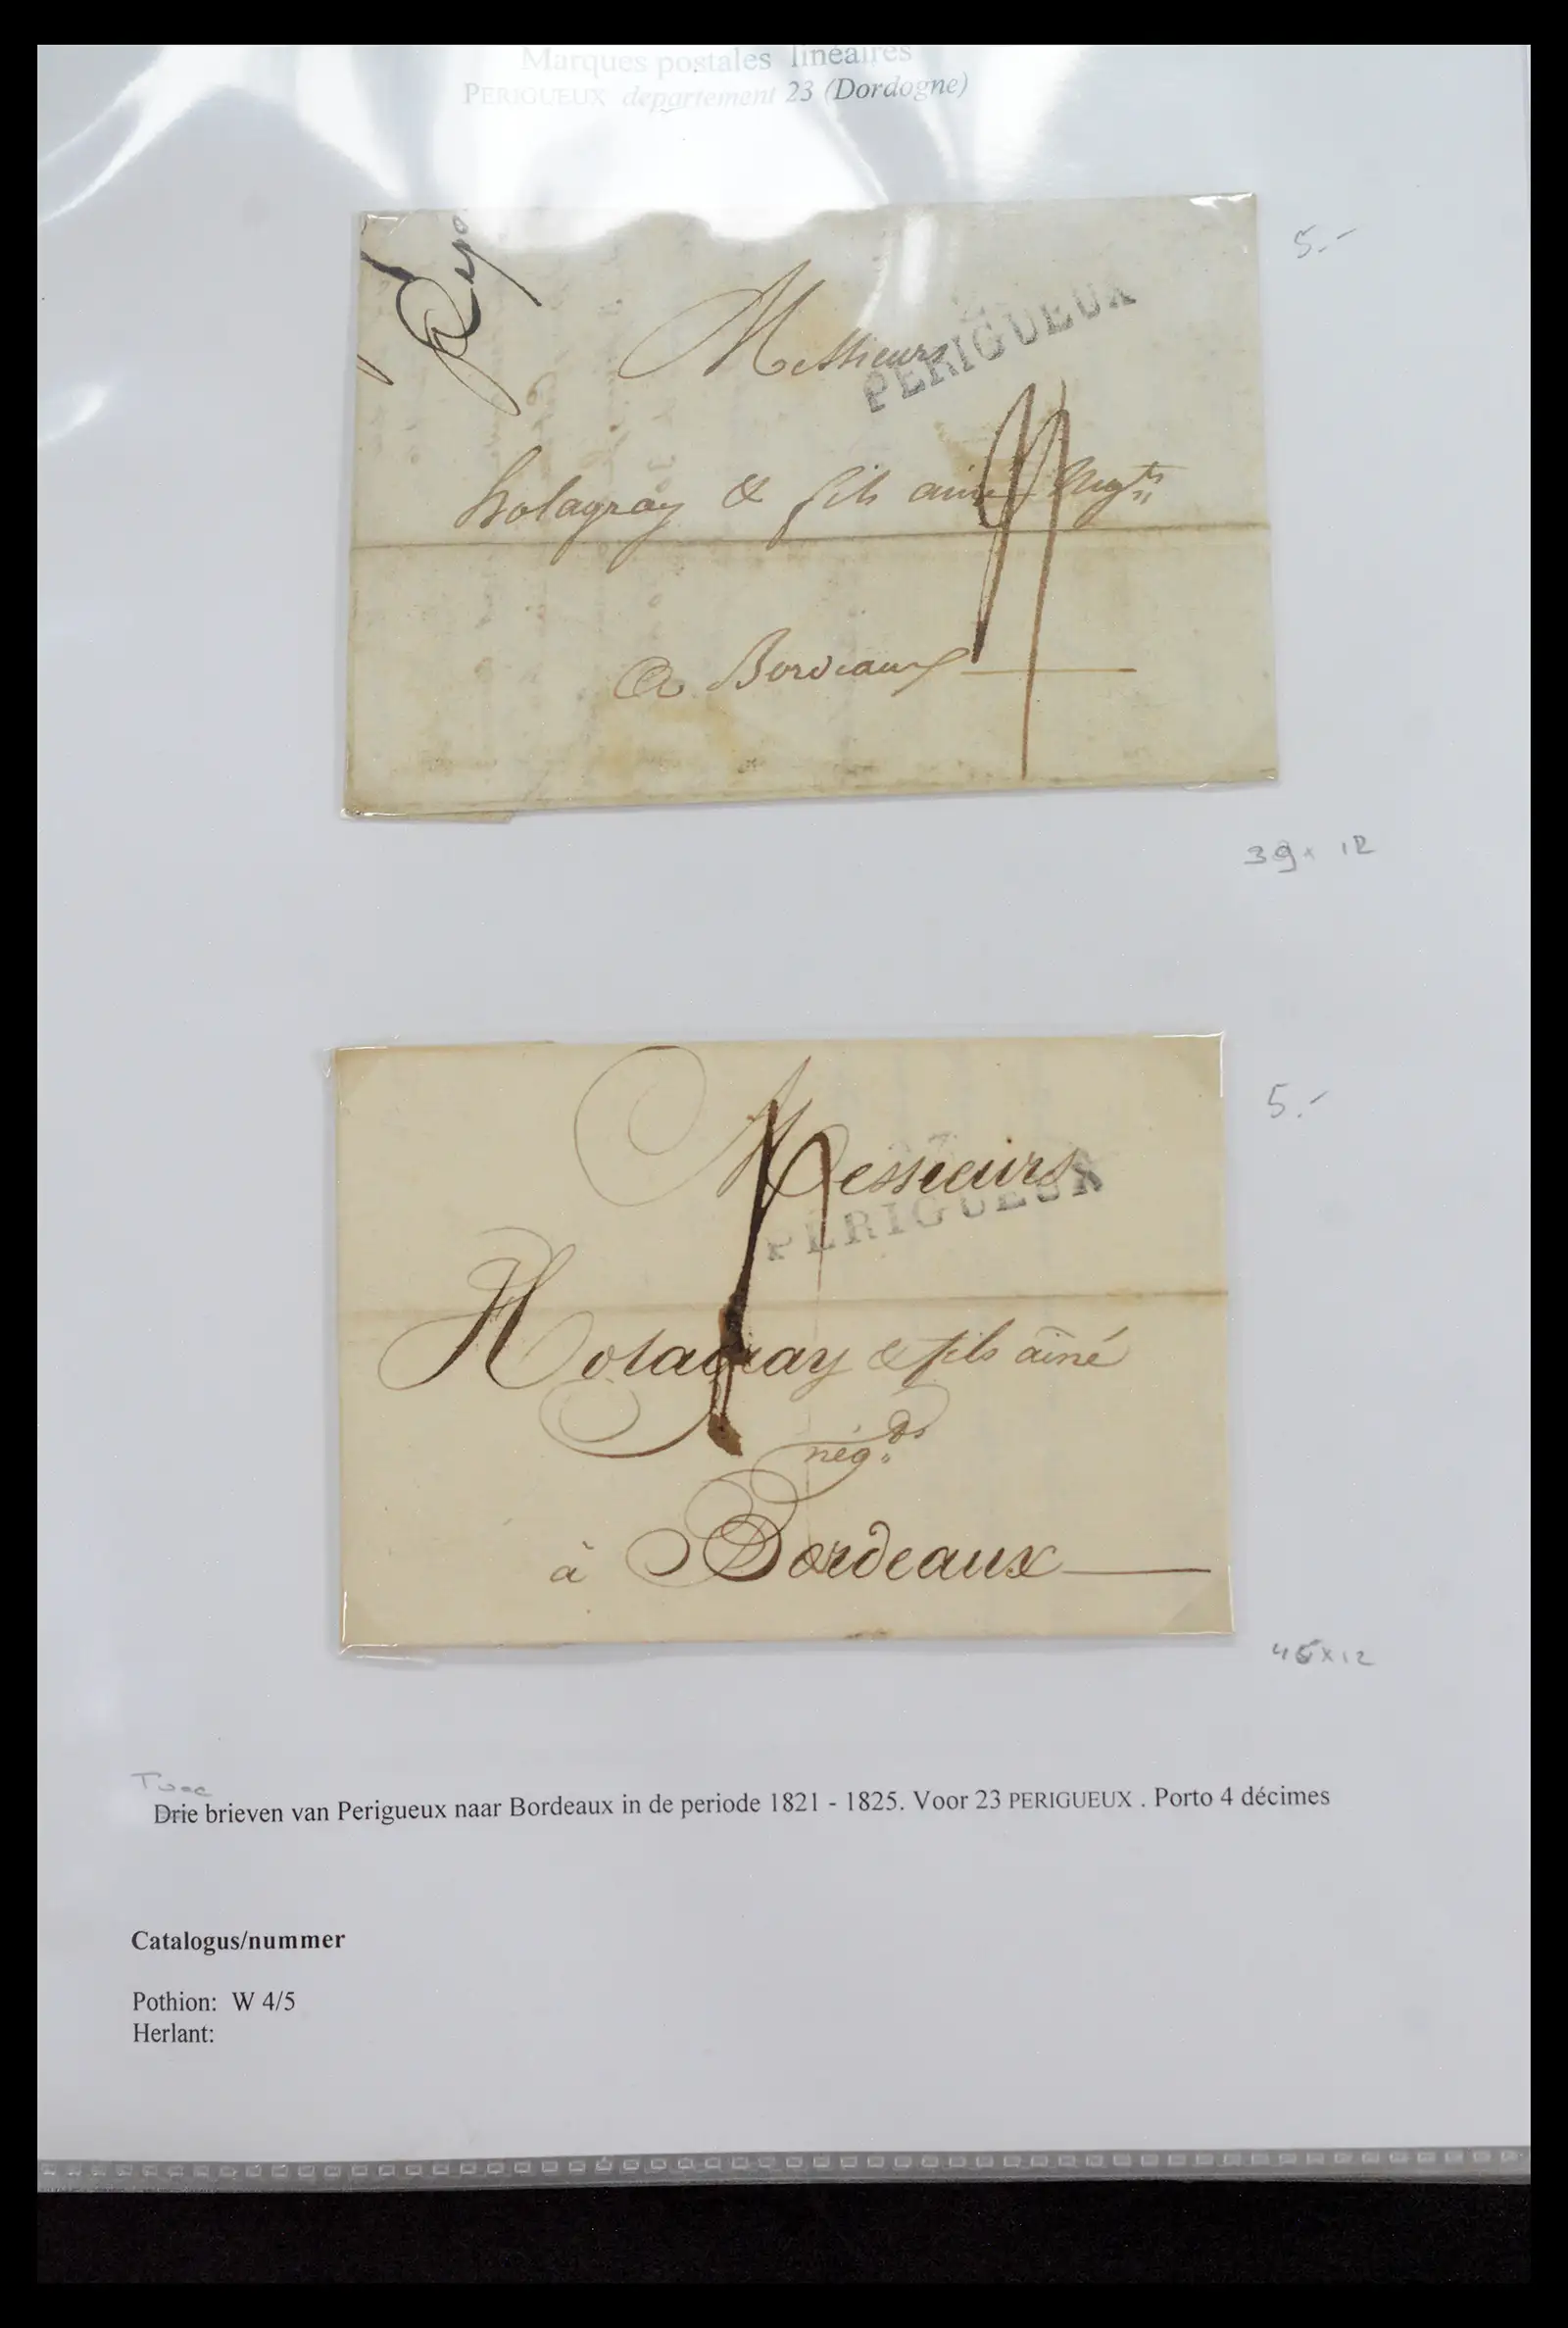 Marques postales linéaires
PERIGUEUX departement 23 (Dordogne)
5.-
Messieurs
PERIGUEUX
holagray & fils ainé Negts
a Bordeaux
39 x 12
5.-
Messieurs
PERIGUEUX
Holagray & fils ainé
nég.
à Bordeaux
45 x 12
Twee
Drie brieven van Perigueux naar Bordeaux in de periode 1821 - 1825. Voor 23 PERIGUEUX . Porto 4 décimes
Catalogus/nummer
Pothion: W 4/5
Herlant: